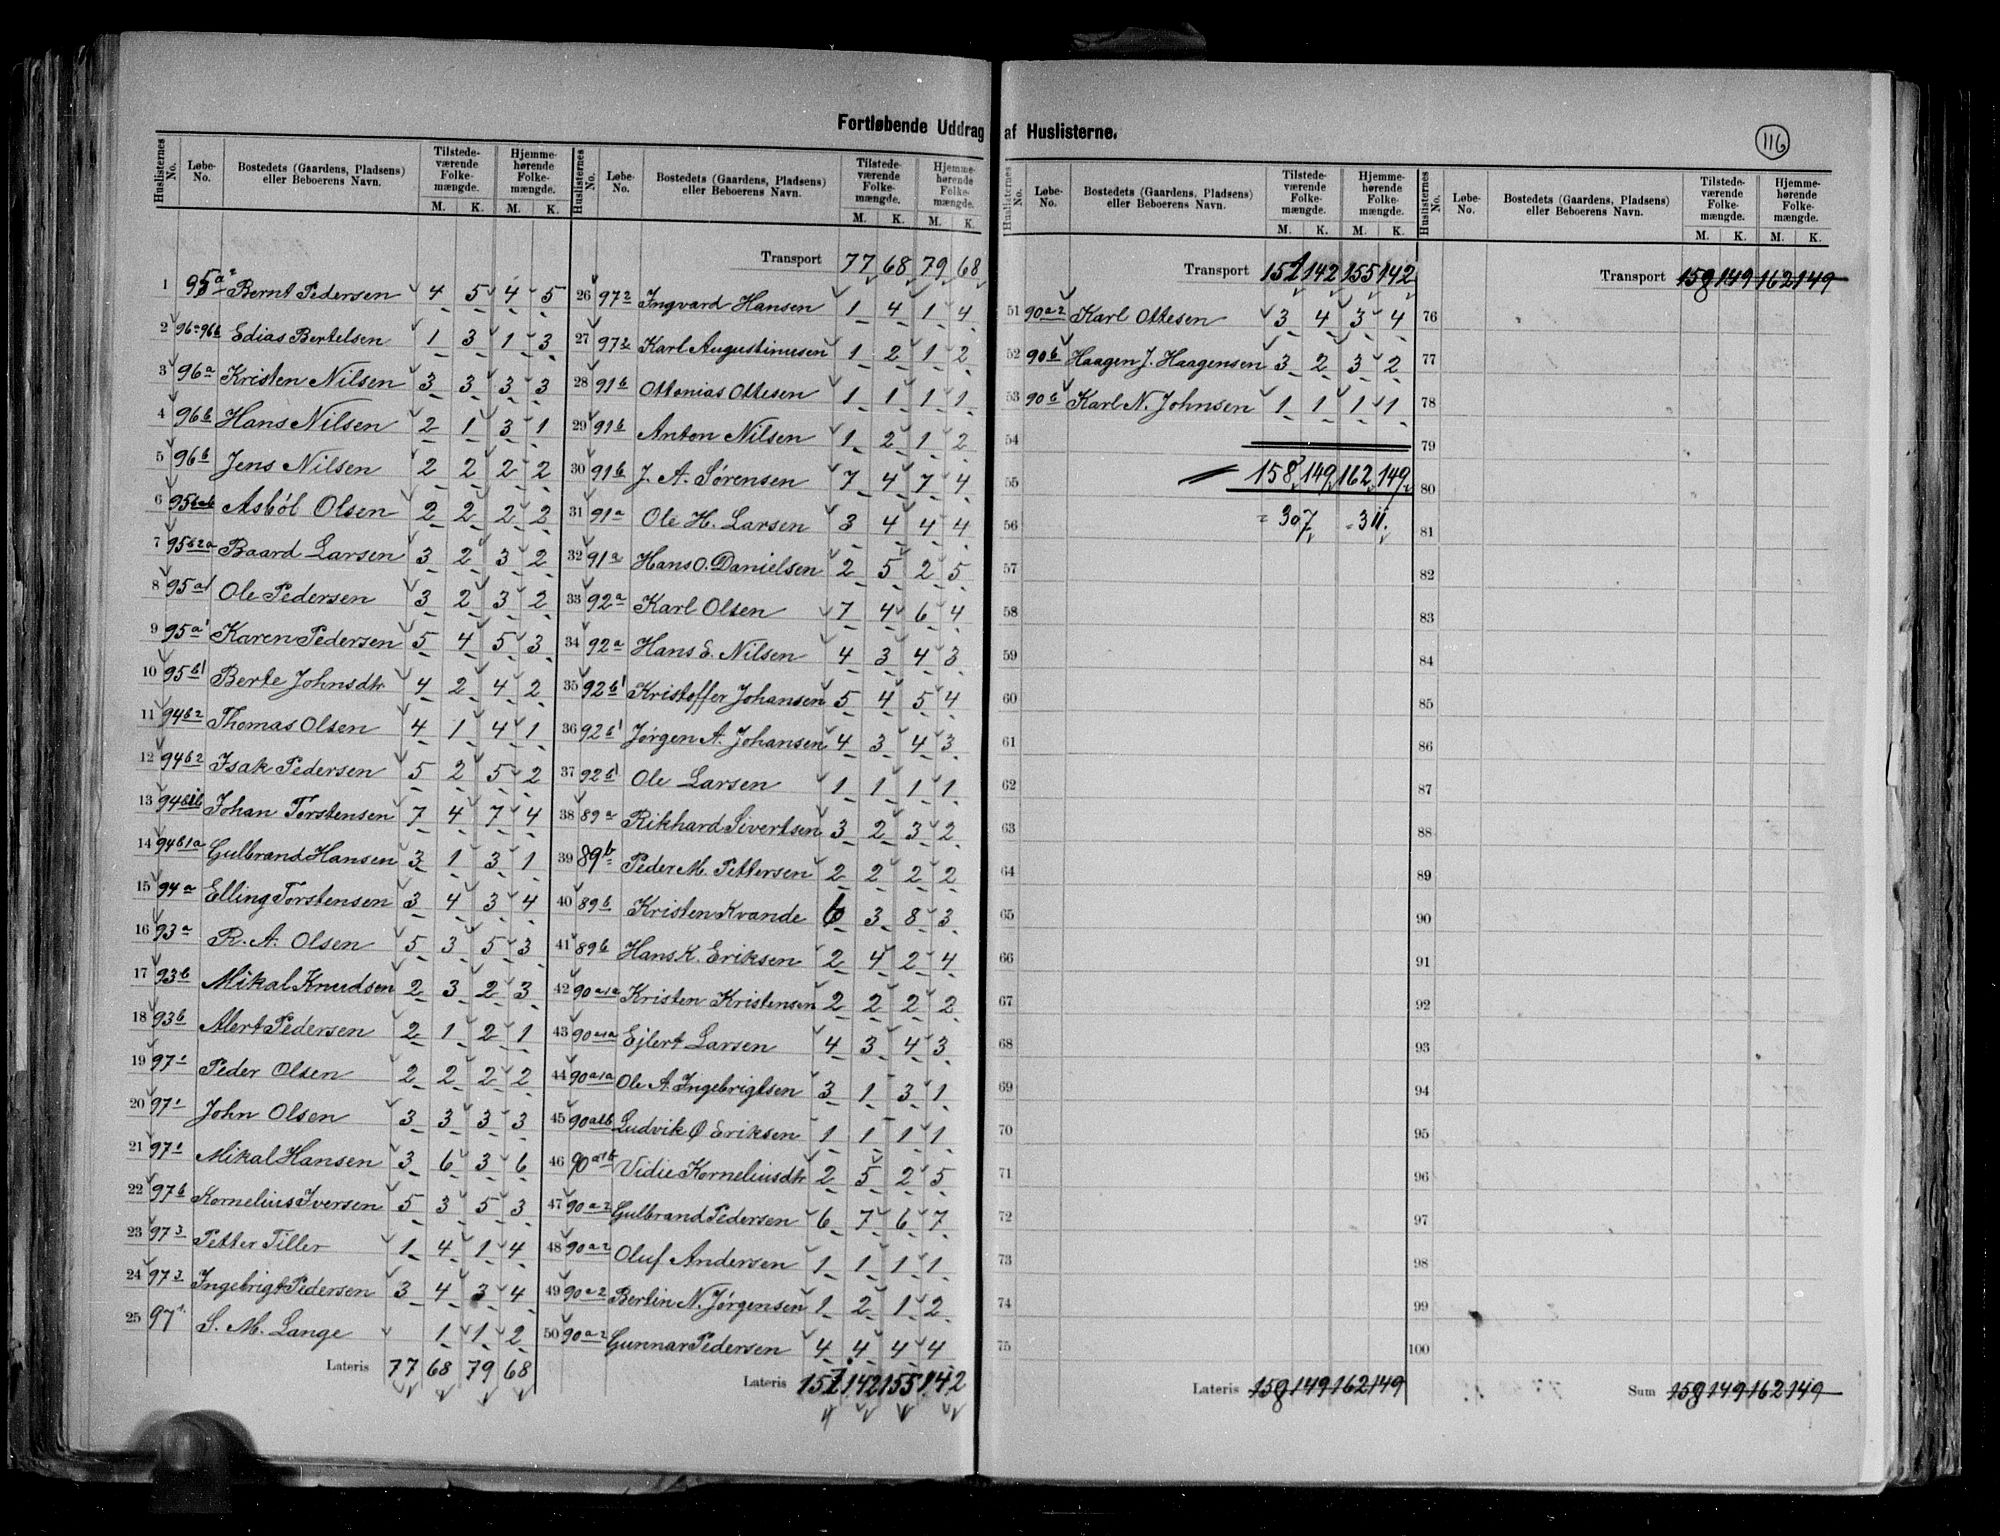 Fortløbende Uddrag af Huslisterne.
116
Huslisternes No. | Løbe-No. | Bostedets (Gaardens, Pladsens) eller Beboerens Navn. | Tilstedeværende Folkemængde. M. K. | Hjemmehørende Folkemængde. M. K.
1 95a2 Bernt Pedersen 4 5 4 5
2 96a 96b Edias Bertelsen 1 3 1 3
3 96a Kristen Nilsen 3 3 3 3
4 96b Hans Nilsen 2 1 3 1
5 96b Jens Nilsen 2 2 2 2
6 95 Asbøl Olsen 2 2 2 2
7 95b2a Baard Larsen 3 2 3 2
8 95a1 Ole Pedersen 3 2 3 2
9 95a1 Karen Pedersen 5 4 5 3
10 95b1 Berte Johnsdtr 4 2 4 2
11 94b2 Thomas Olsen 4 1 4 1
12 94b2 Isak Pedersen 5 2 5 2
13 94b1b Johan Torstensen 7 4 7 4
14 94b1a Gulbrand Hansen 3 1 3 1
15 94a Elling Torstensen 3 4 3 4
16 93a R. A. Olsen 5 3 5 3
17 93b Mikal Knudsen 2 3 2 3
18 93b Alert Pedersen 2 1 2 1
19 971 Peder Olsen 2 2 2 2
20 971 John Olsen 3 3 3 3
21 971 Mikal Hansen 3 6 3 6
22 97b Kornelius Iversen 5 3 5 3
23 973 Petter Tiller 1 4 1 4
24 973 Ingebrigt Pedersen 3 4 3 4
25 97 S. M. Lange 1 1 2
Lateris 77 68 79 68
Huslisternes No. | Løbe-No. | Bostedets (Gaardens, Pladsens) eller Beboerens Navn. | Tilstedeværende Folkemængde. M. K. | Hjemmehørende Folkemængde. M. K.
Transport 77 68 79 68
26 972 Ingvard Hansen 1 4 1 4
27 972 Karl Augustinusen 1 2 1 2
28 91b Ottonias Ottesen 1 1 1 1
29 91b Anton Nilsen 1 2 1 2
30 91b J. A. Sørensen 7 4 7 4
31 91a Ole H. Larsen 3 4 4 4
32 91a Hans O. Danielsen 2 5 2 5
33 92a Karl Olsen 7 4 6 4
34 92a Hans E. Nilsen 4 3 4 3
35 92b1 Kristoffer Johansen 5 4 5 4
36 92b1 Jørgen A. Johansen 4 3 4 3
37 92b1 Ole Larsen 1 1 1 1
38 89a Rikhard Sivertsen 3 2 3 2
39 89b Peder M. Pettersen 2 2 2 2
40 89b Kristen Kvande 6 3 8 3
41 89b Hans K. Eriksen 2 4 2 4
42 90a1a Kristen Kristensen 2 2 2 2
43 90a1a Ejlert Larsen 4 3 4 3
44 90a1a Ole A. Ingebrigtsen 3 1 3 1
45 90a1b Ludvik Ø Eriksen 1 1 1 1
46 90a1b Vidie Korneliusdtr 2 5 2 5
47 90a2 Gulbrand Pedersen 6 7 6 7
48 90a2 Oluf Andersen 1 1 1 1
49 90a2 Bertin N. Jørgensen 1 2 1 2
50 90a2 Gunnar Pedersen 4 4 4 4
Lateris 151 142 155 142
Huslisternes No. | Løbe-No. | Bostedets (Gaardens, Pladsens) eller Beboerens Navn. | Tilstedeværende Folkemængde. M. K. | Hjemmehørende Folkemængde. M. K.
Transport 151 142 155 142
51 90a2 Karl Ottesen 3 4 3 4
52 90b Haagen J. Haagensen 3 2 3 2
53 90b Karl N. Johnsen 1 1 1 1
54
55 158 149 162 149
56 = 307 = 311.
57
58
59
60
61
62
63
64
65
66
67
68
69
70
71
72
73
74
75
Lateris 158 149 162 149
Huslisternes No. | Løbe-No. | Bostedets (Gaardens, Pladsens) eller Beboerens Navn. | Tilstedeværende Folkemængde. M. K. | Hjemmehørende Folkemængde. M. K.
Transport 158 149 162 149
76
77
78
79
80
81
82
83
84
85
86
87
88
89
90
91
92
93
94
95
96
97
98
99
100
Sum 158 149 162 149